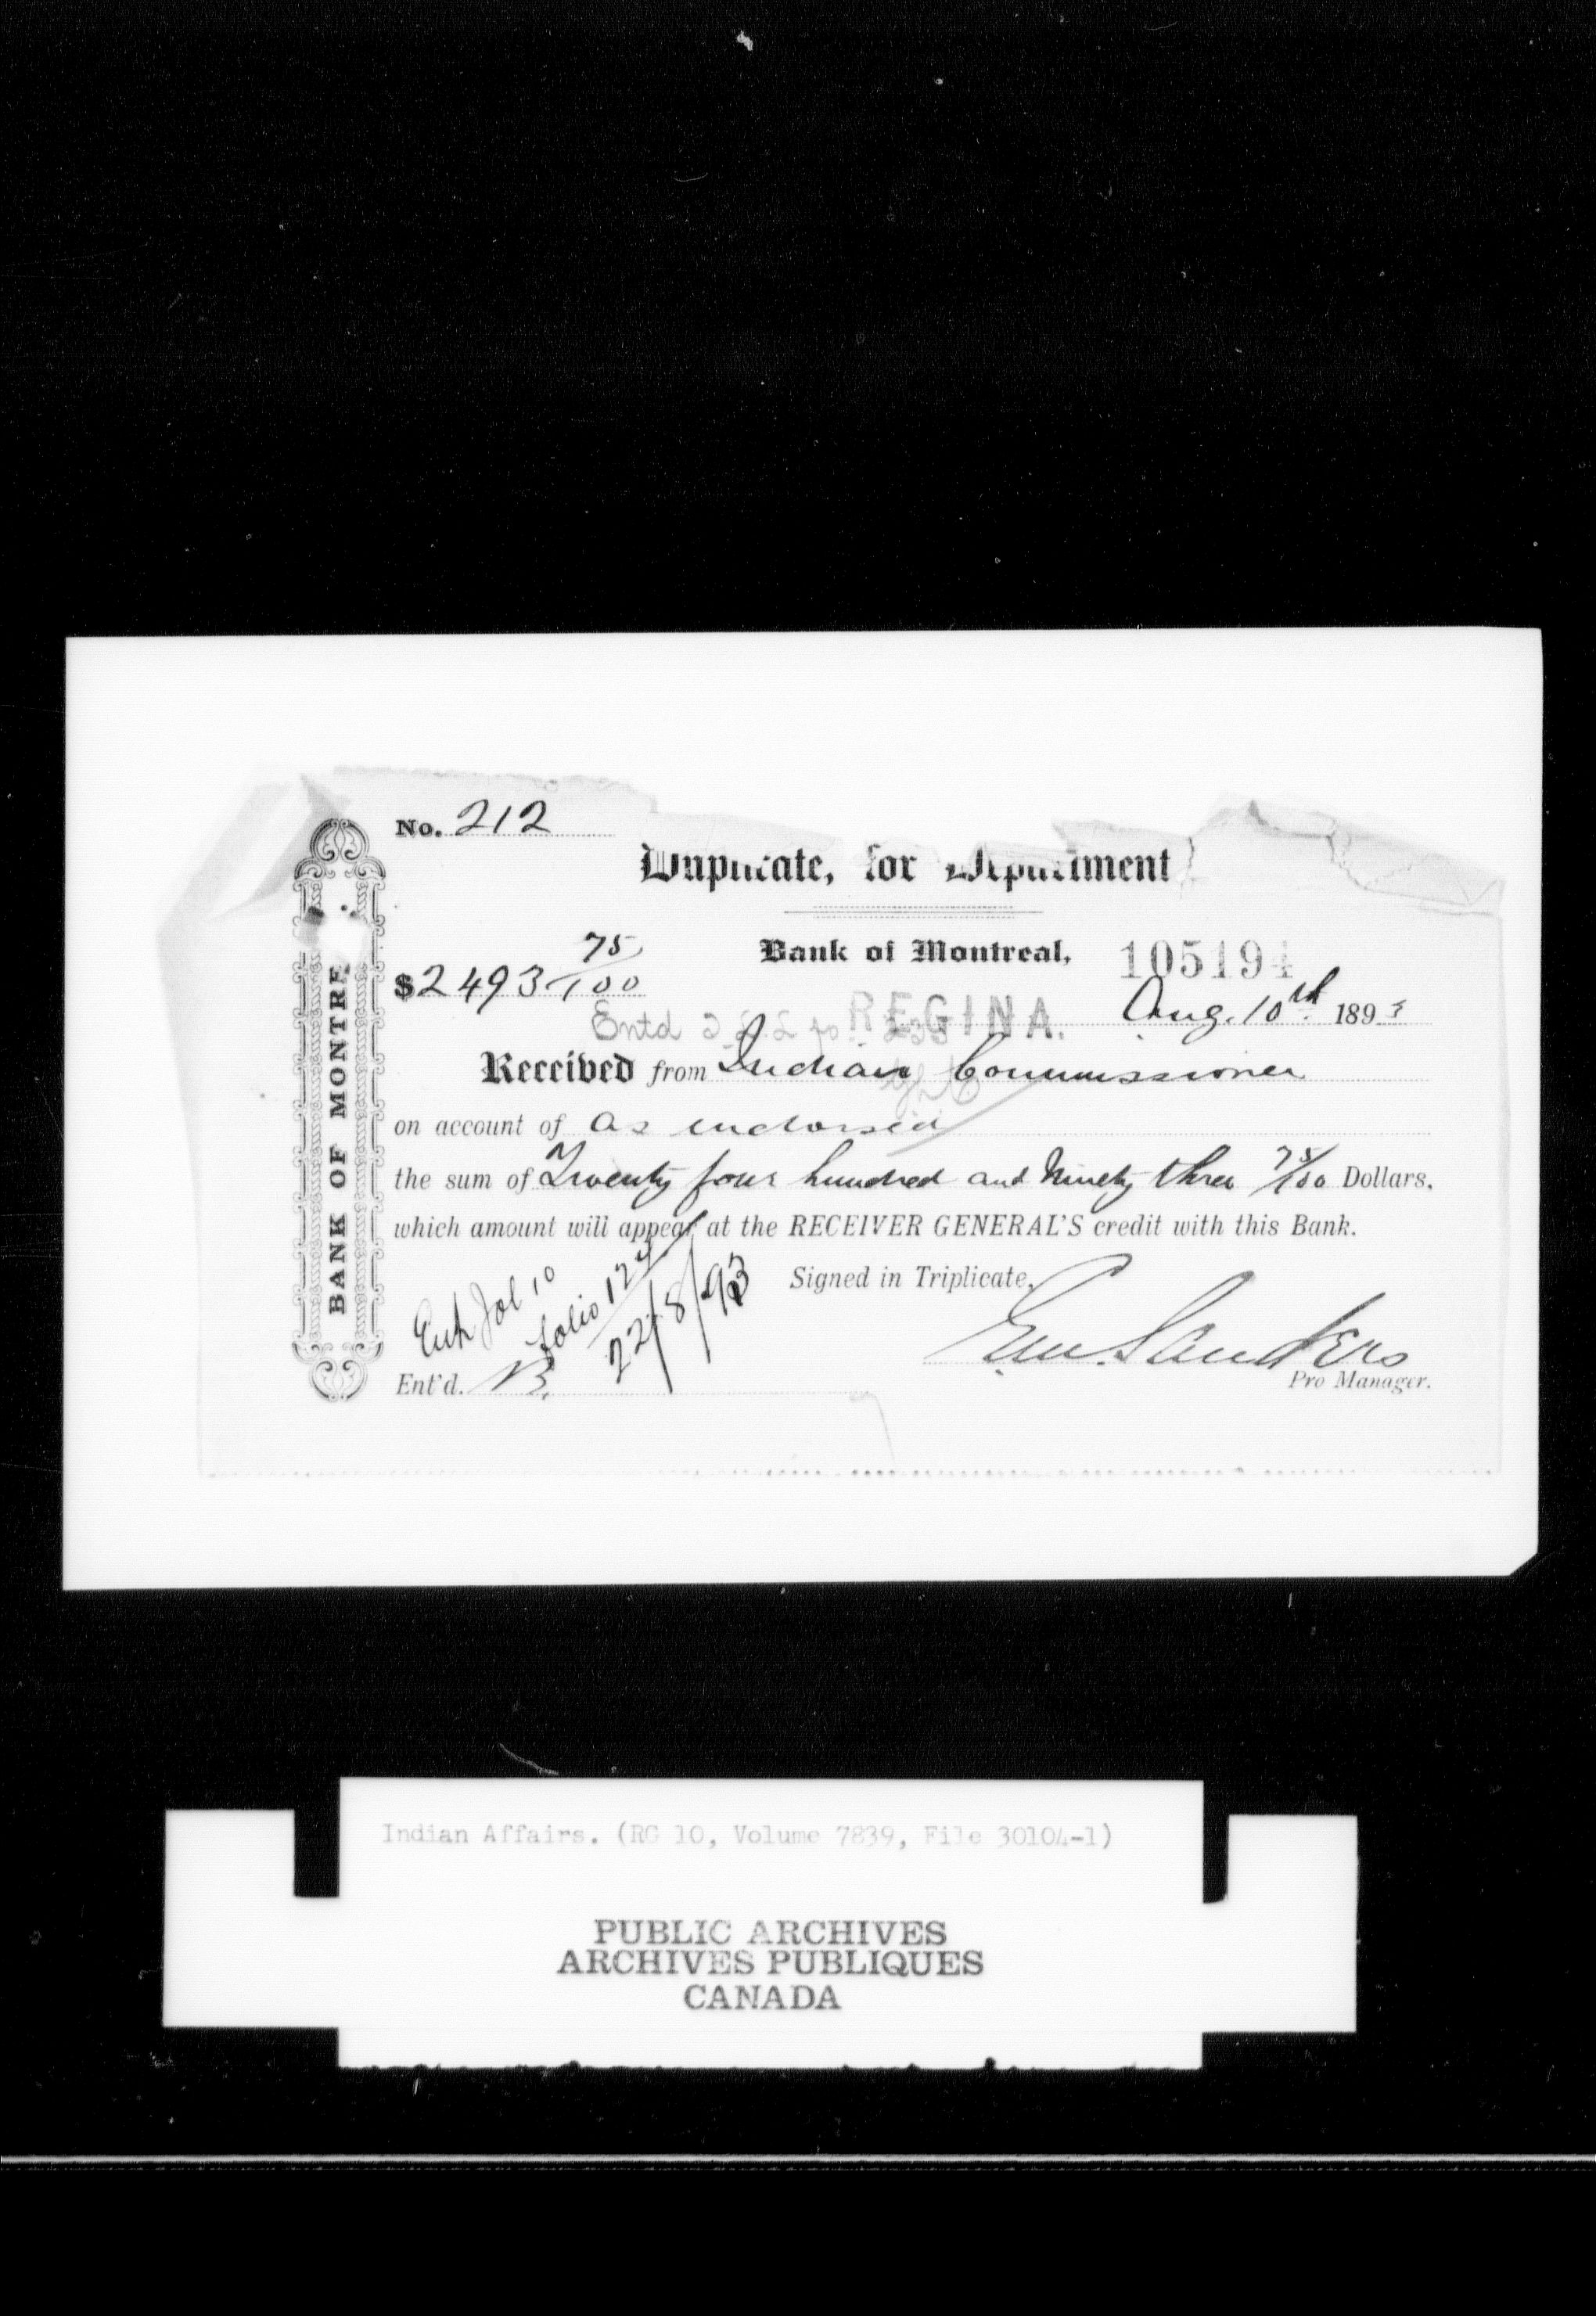 No. 212
Duplicate, for Department
$2493 75/100
Bank of Montreal,
105194
Entd
REGINA.
Aug. 10th 1893
Received from Indian Commissioner
on account of as endorsed
the sum of Twenty four hundred and Ninety three 75/100 Dollars,
which amount will appear at the RECEIVER GENERAL'S credit with this Bank.
Signed in Triplicate,
folio
22/8/93
Sanders
Ent'd. B.
Pro Manager.
BANK OF MONTRE
Indian Affairs. (RG 10, Volume 7839, File 30104-1)
PUBLIC ARCHIVES
ARCHIVES PUBLIQUES
CANADA